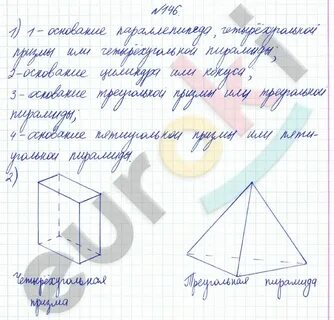 № 146
1) 1 - основание параллепипеда, четырёхугольной
призмы или четырёхугольной пирамиды;
2 - основание цилиндра или конуса;
3 - основание треугольной призмы или треугольной
пирамиды;
4 - основание пятиугольной призмы или пяти-
угольной пирамиды.
2)
Четырёхугольная
призма
Треугольная пирамида
euroki